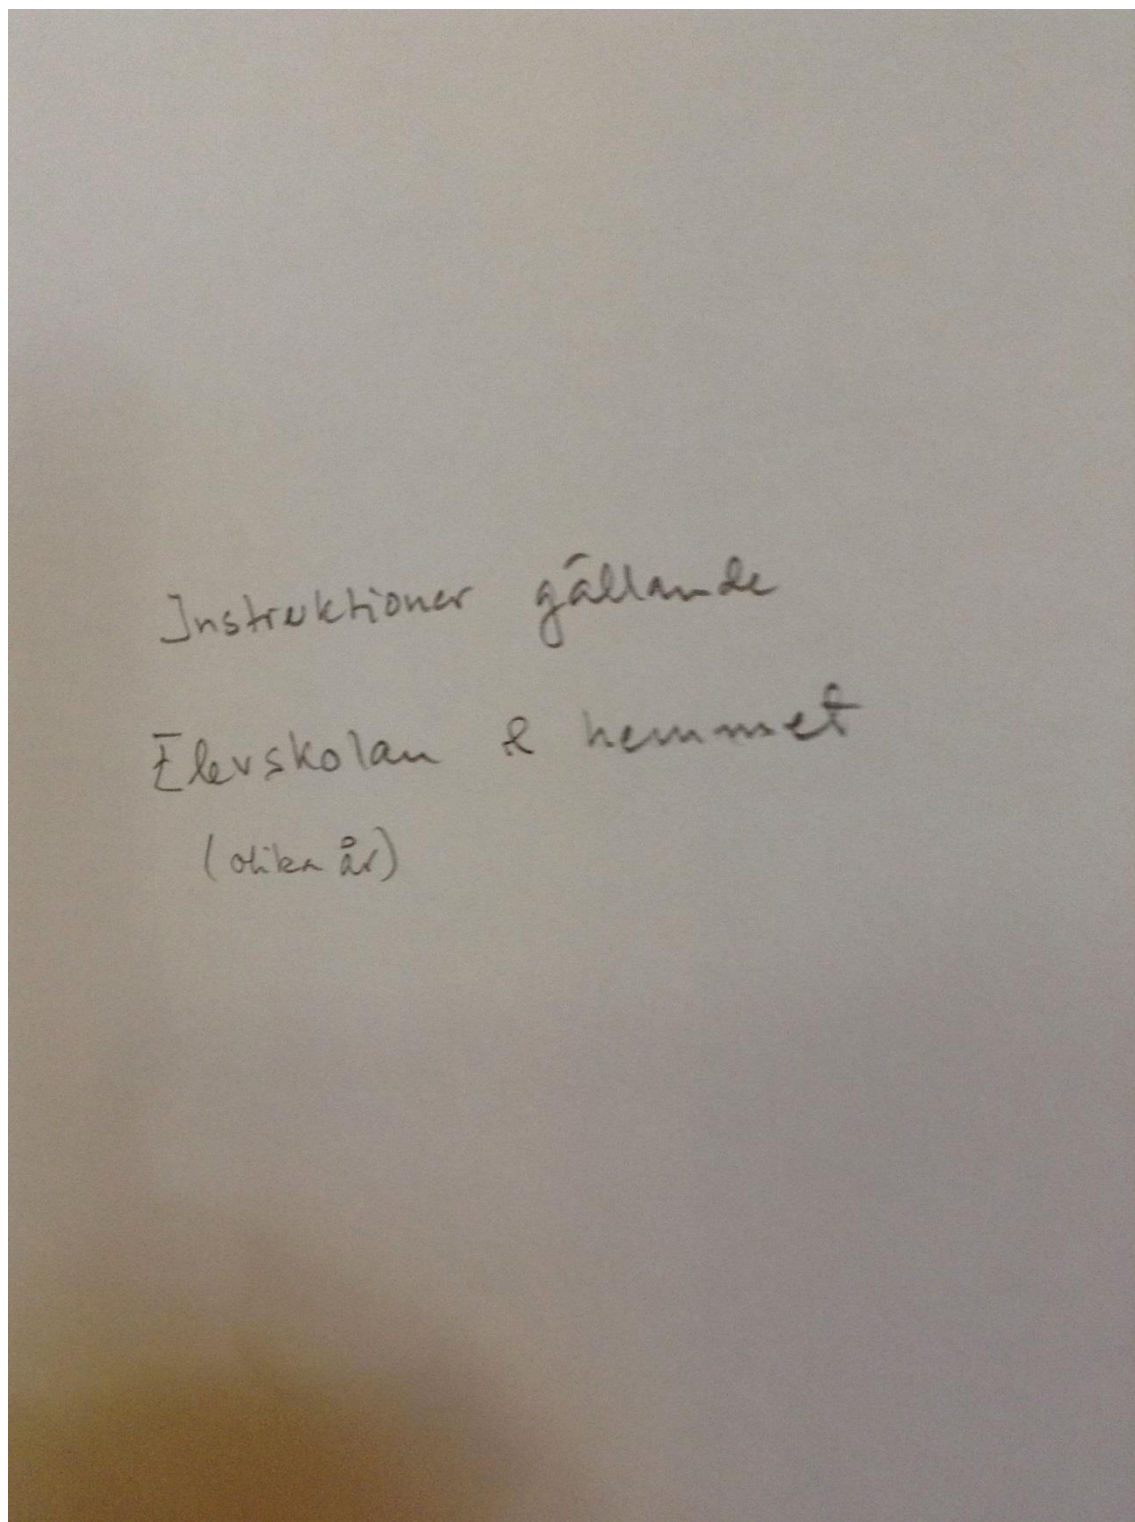 Instruktioner gällande
Elevskolan & hemmet
(olika år)